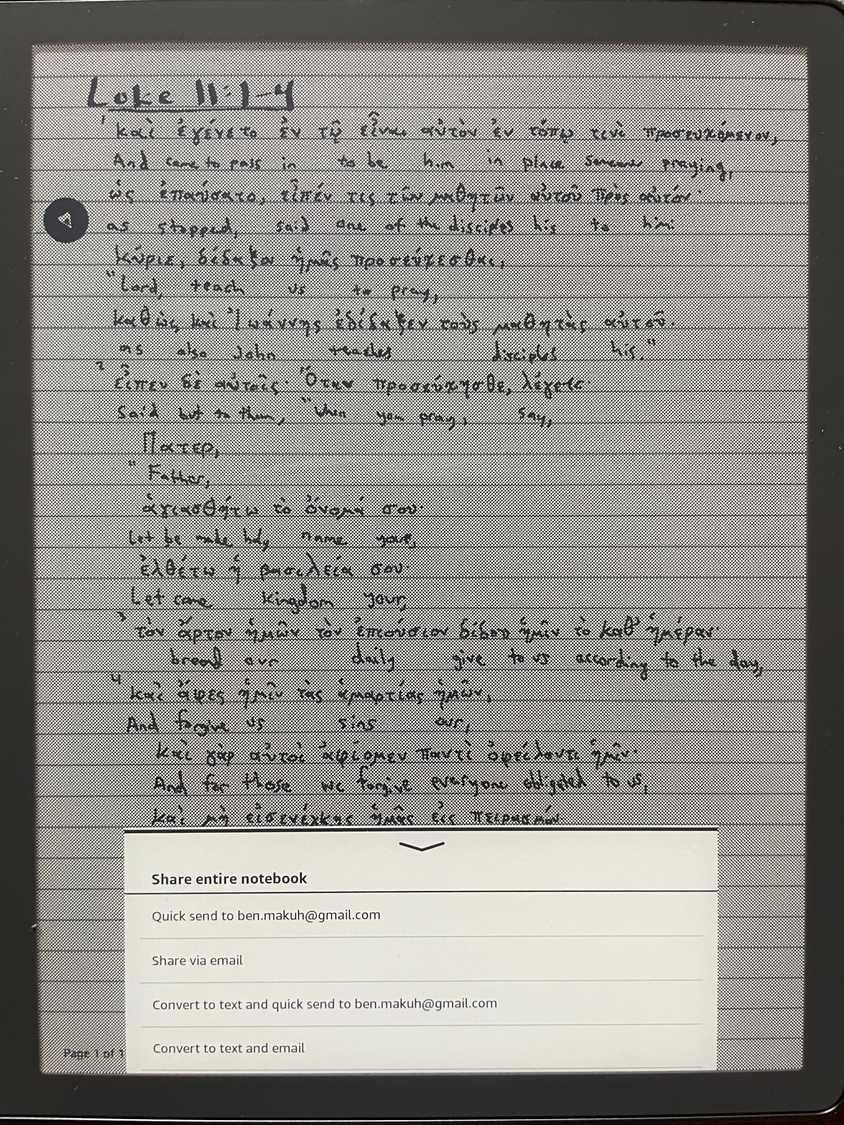 Luke 11:1-4
¹ καὶ ἐγένετο ἐν τῷ εἶναι αὐτὸν ἐν τόπῳ τινὶ προσευχόμενον,
And came to pass in to be him in place someone praying,
ὡς ἐπαύσατο, εἶπέν τις τῶν μαθητῶν αὐτοῦ πρὸς αὐτόν·
as stopped, said one of the disciples his to him:
κύριε, δίδαξον ἡμᾶς προσεύχεσθαι,
"Lord, teach us to pray,
καθὼς καὶ Ἰωάννης ἐδίδαξεν τοὺς μαθητὰς αὐτοῦ.
as also John teaches disciples his."
² εἶπεν δὲ αὐτοῖς· Ὅταν προσεύχησθε, λέγετε·
Said but to them, "When you pray, say,
Πατερ,
"Father,
ἁγιασθήτω τὸ ὄνομά σου·
Let be make holy name your,
ἐλθέτω ἡ βασιλεία σου·
Let come kingdom your,
³ τὸν ἄρτον ἡμῶν τὸν ἐπιούσιον δίδου ἡμῖν τὸ καθ' ἡμέραν·
bread our daily give to us according to the day,
⁴ καὶ ἄφες ἡμῖν τὰς ἁμαρτίας ἡμῶν,
And forgive us sins our,
καὶ γὰρ αὐτοὶ ἀφίομεν παντὶ ὀφείλοντι ἡμῖν·
And for those we forgive everyone obligated to us,
καὶ μὴ εἰσενέγκῃς ἡμᾶς εἰς πειρασμόν.
Share entire notebook
Quick send to ben.makuh@gmail.com
Share via email
Convert to text and quick send to ben.makuh@gmail.com
Convert to text and email
Page 1 of 1